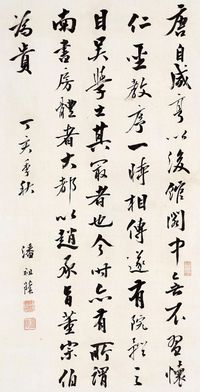 唐自咸亨以後館閣中無不習懷
仁聖教序一時相傳遂有院體之
目吴學士其最者也今時亦有所謂
南書房體者大都以趙承旨董宗伯
為貴
丁亥季秋
潘祖蔭